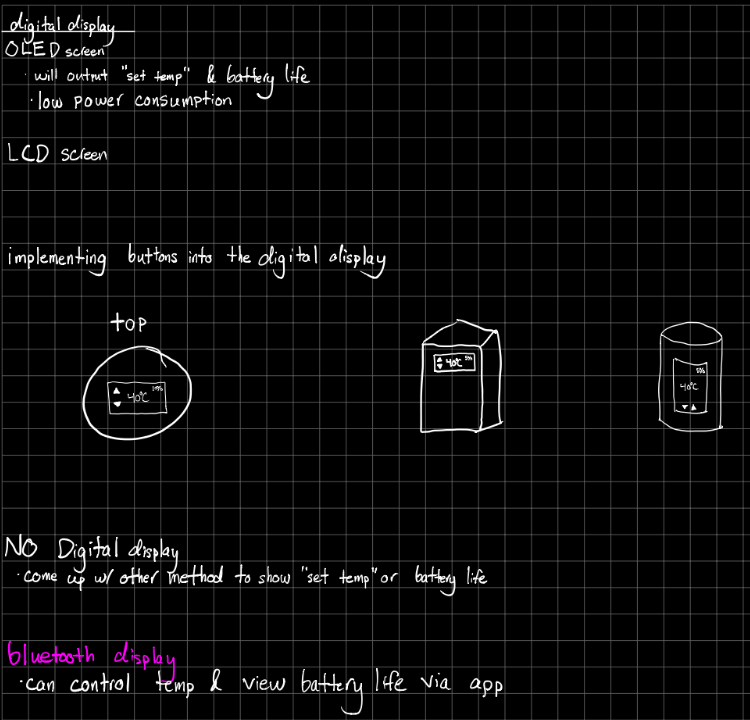 digital display
OLED screen
· will output "set temp" & battery life
· low power consumption
LCD screen
implementing buttons into the digital display
top
▲ 40°C
▼
▲ 40°C
▼
40°C
▼ ▲
NO Digital display
· come up w/ other method to show "set temp" or battery life
bluetooth display
· can control temp & view battery life via app